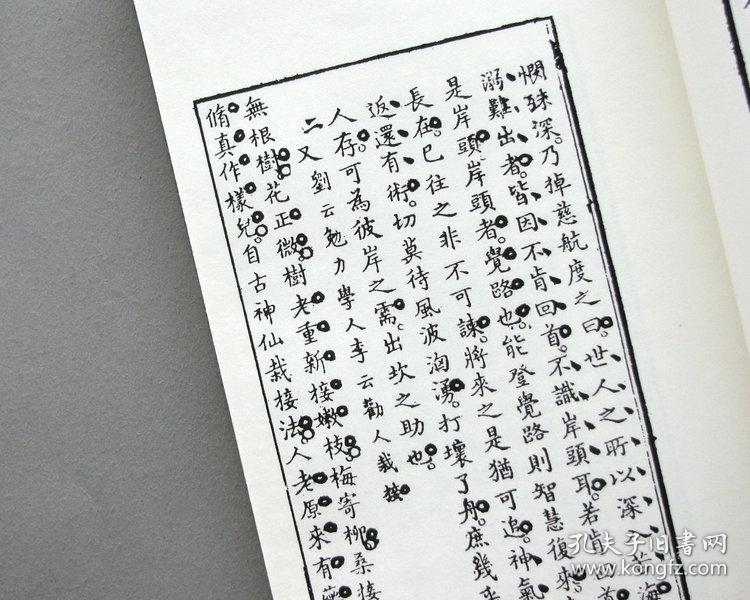 憫殊深。乃掉慈航度之曰。世人之所以深入苦海
溺難出者。皆因不肯回首。不識岸頭耳。若肯回首
是岸頭岸頭者。覺路也。能登覺路則智慧復來
長在。已往之非不可諫。將來之是猶可追。神氣
返還有術。切莫待風波洶湧。打壞了舟。庶幾
人存。可為彼岸之需。出坎之助也。
二又劉云勉力學人李云勸人栽接
無根樹。花正微。樹老重新接嫩枝。梅寄柳。桑接
脩真作樣兒。自古神仙栽接法。人老原來有
孔夫子旧书网
www.kongfz.com